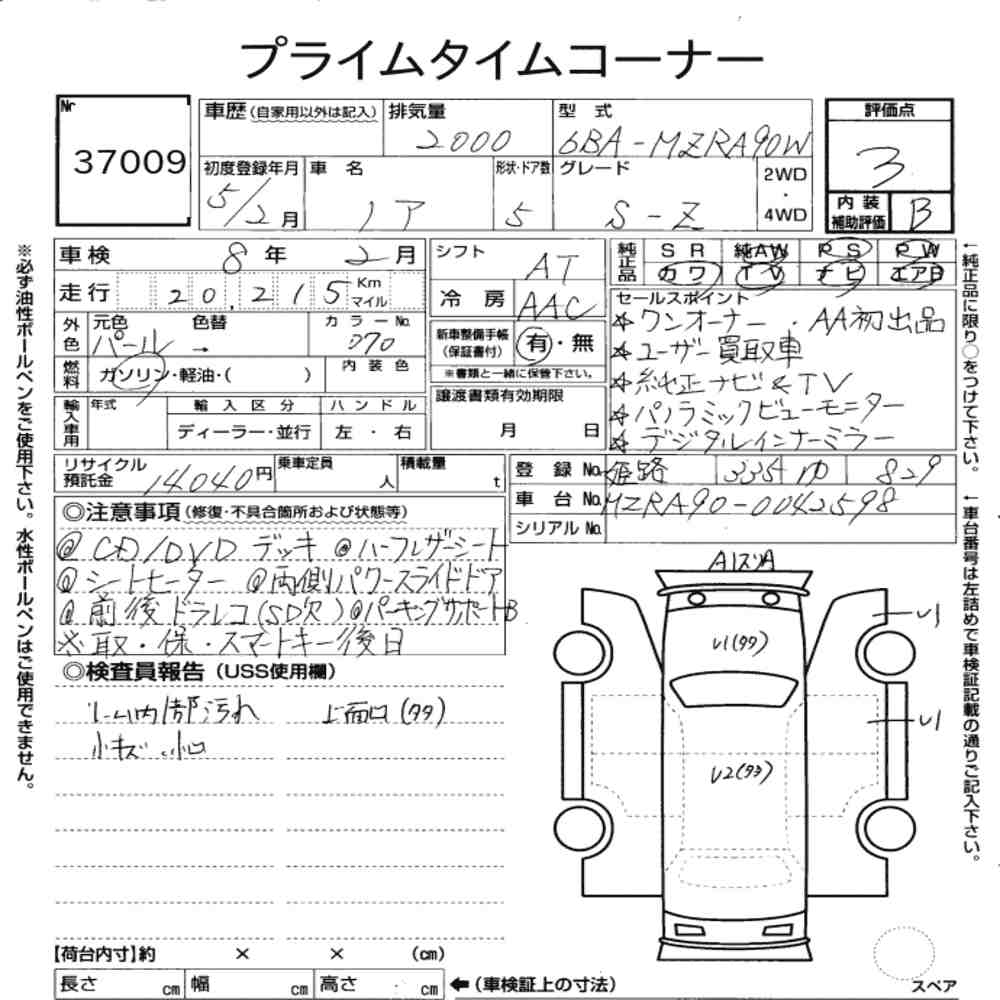 プライムタイムコーナー
Nr
37009
車歴(自家用以外は記入)
排気量
2000
型式
6BA-MZRA90W
評価点
3
初度登録年月
5/2月
車名
ノア
形状・ドア数
5
グレード
S-Z
2WD
・
4WD
内装
補助評価
B
車検 8年 2月
シフト
AT
純正品
SR 純AW PS PW
カワ TV ナビ エアB
走行 20,215 Km
マイル
冷房
AAC
セールスポイント
☆ワンオーナー.AA初出品
☆ユーザー買取車
☆純正ナビ&TV
☆パノラミックビューモニター
☆デジタルインナーミラー
外色
元色
パール
色替
→
カラーNo.
070
新車整備手帳
(保証書付)
有・無
※書類と一緒に保管下さい。
燃料
ガソリン・軽油・( )
内装色
輸入車用
年式
輸入区分
ハンドル
ディーラー・並行
左・右
譲渡書類有効期限
月 日
リサイクル
預託金
14040円
乗車定員
人
積載量
t
登録No. 姫路 335 ゆ 829
車台No. MZRA90-0042598
シリアルNo.
◎注意事項(修復・不具合箇所および状態等)
@CD/DVDデッキ @ハーフレザーシート
@シートヒーター @両側パワースライドドア
@前後ドラレコ(SD欠)@パーキングサポートB
※取・保・スマートキー後日
◎検査員報告(USS使用欄)
ルーム内部汚れ 上面口(タタ)
小キズ.小口
A1ズリA
U1(タタ)
U2(タタ)
U1
U1
【荷台内寸】約 × × (cm)
長さ cm 幅 cm 高さ cm
←(車検証上の寸法)
スペア
※必ず油性ボールペンをご使用下さい。水性ボールペンはご使用できません。
←純正品に限り○をつけて下さい。
←車台番号は左詰めで車検証記載の通りご記入下さい。